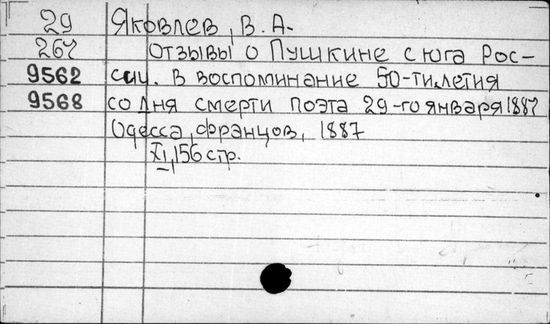 29 Яковлев, В. А.
267 Отзывы о Пушкине с юга Рос-
9562 сии. В воспоминание 50-тилетия
9568 со дня смерти поэта 29-го января 1887
Одесса, Францов, 1887
XI, 156 стр.